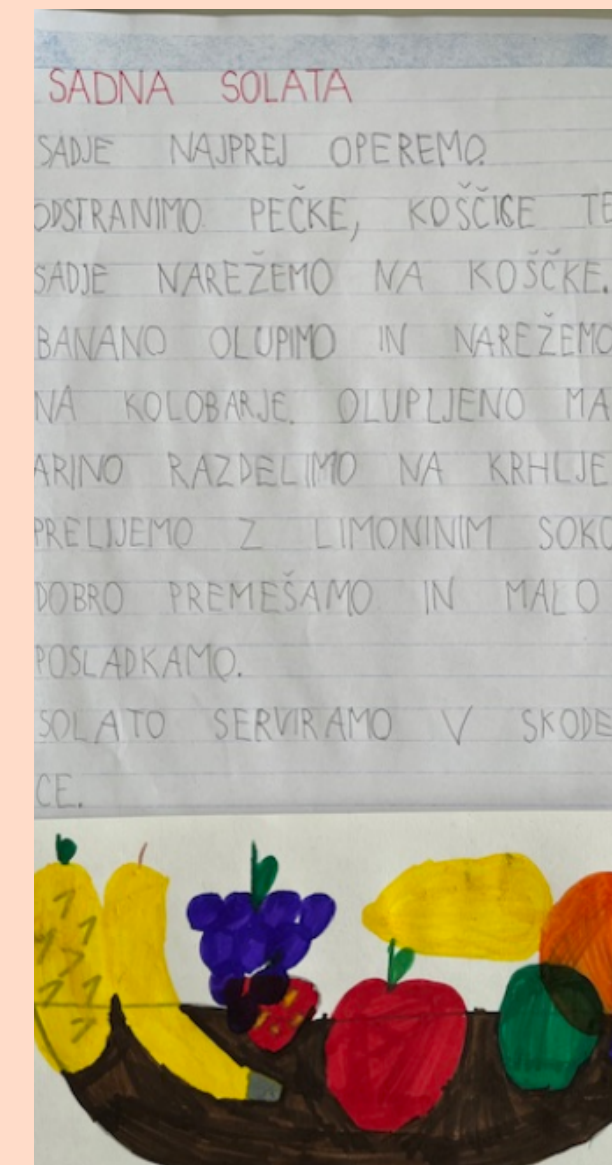 SADNA SOLATA
SADJE NAJPREJ OPEREMO.
ODSTRANIMO PEČKE, KOŠČICE TE
SADJE NAREŽEMO NA KOŠČKE.
BANANO OLUPIMO IN NAREŽEMO
NA KOLOBARJE. OLUPLJENO MA
ARINO RAZDELIMO NA KRHLJE
PRELIJEMO Z LIMONINIM SOKO
DOBRO PREMEŠAMO IN MALO
POSLADKAMO.
SOLATO SERVIRAMO V SKODE
CE.